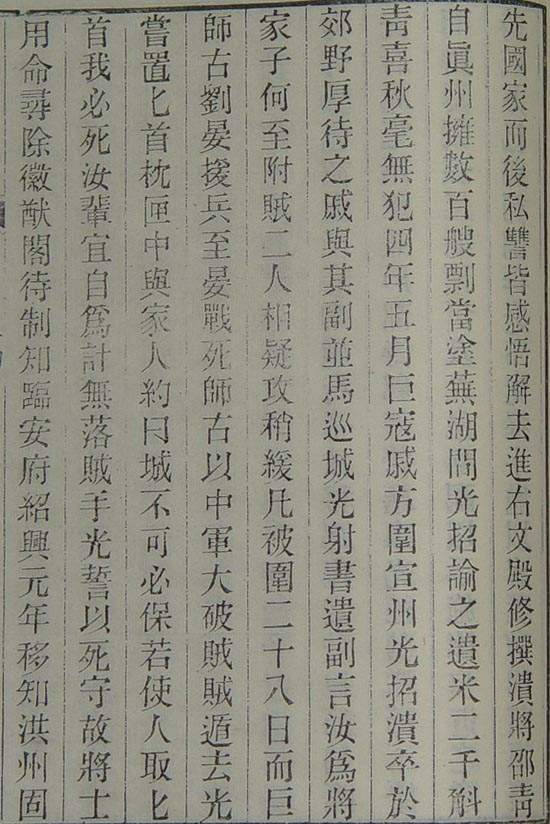 先國家而後私讐皆感悟解去進右文殿修撰潰將邵靑
自眞州擁數百艘剽當塗蕪湖間光招諭之遺米二千斛
靑喜秋毫無犯四年五月巨寇戚方圍宣州光招潰卒於
郊野厚待之戚與其副並馬巡城光射書遺副言汝爲將
家子何至附賊二人相疑攻稍緩凡被圍二十八日而巨
師古劉晏援兵至晏戰死師古以中軍大破賊賊遁去光
嘗置匕首枕匣中與家人約曰城不可必保若使人取匕
首我必死汝輩宜自爲計無落賊手光誓以死守故將士
用命尋除徽猷閣待制知臨安府紹興元年移知洪州固